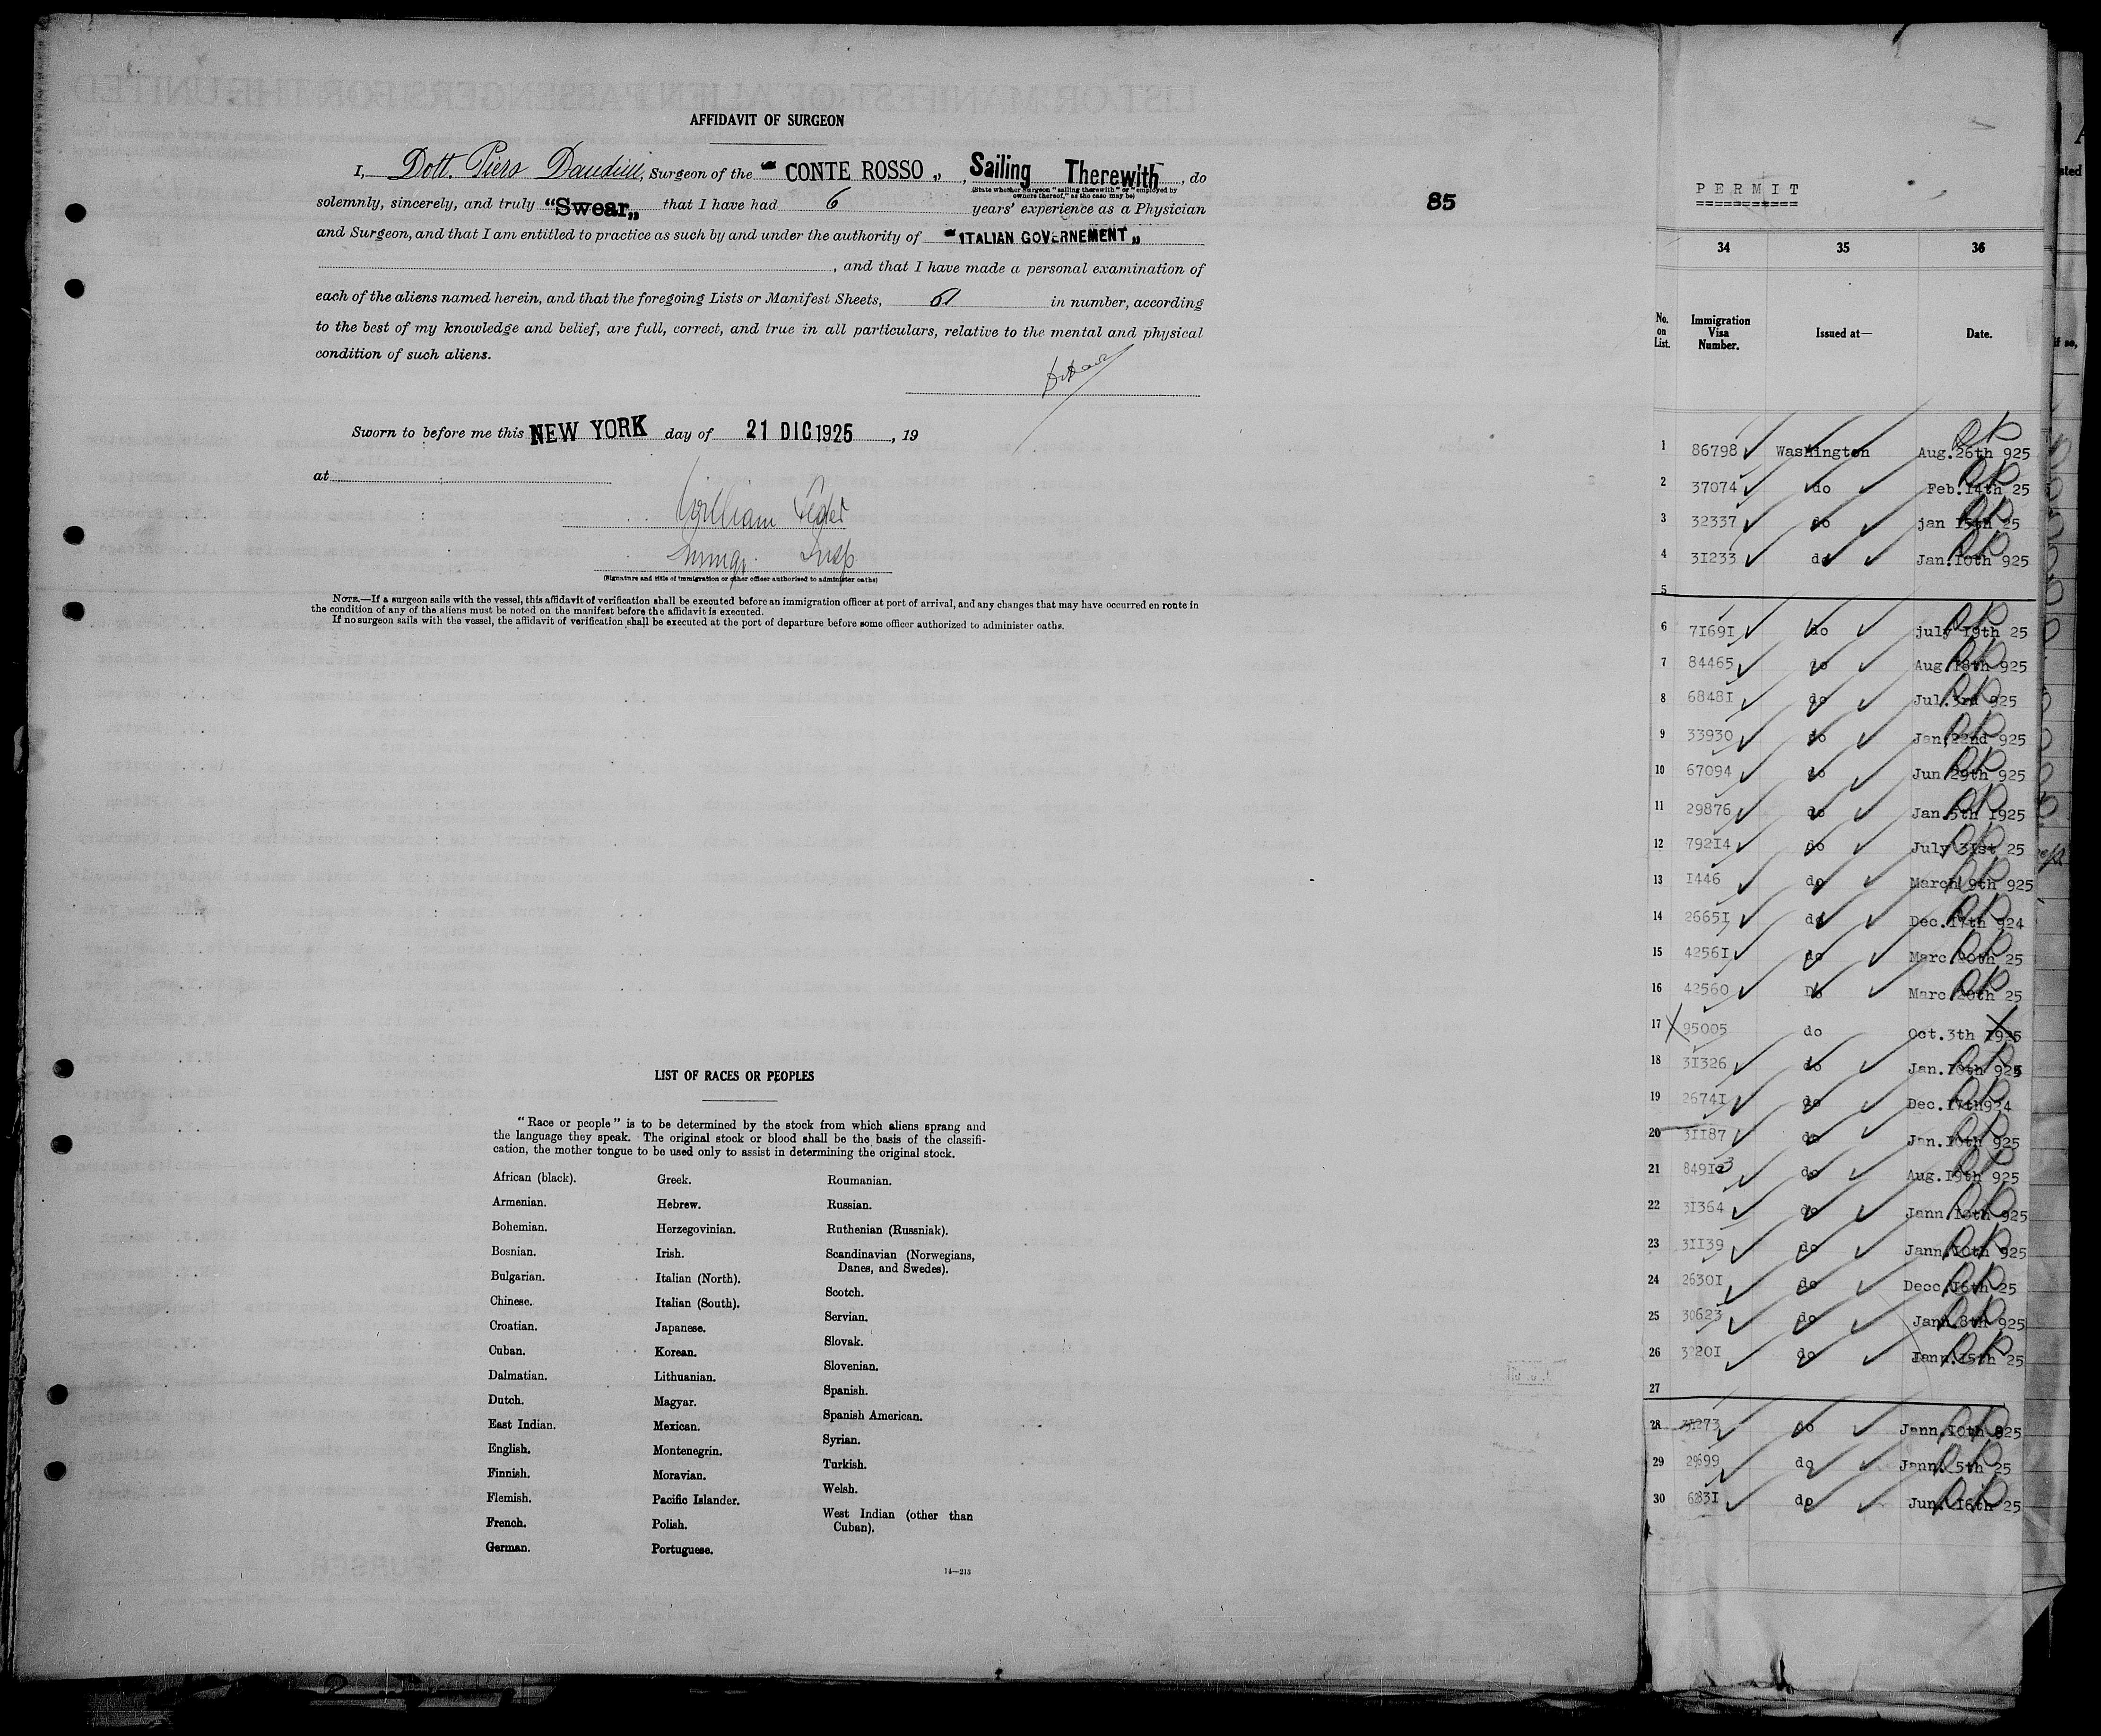 AFFIDAVIT OF SURGEON
I, Dott. Piero , Surgeon of the "CONTE ROSSO„, Sailing Therewith, do
(State whether Surgeon "sailing therewith" or "employed by owners thereof," as the case may be)
solemnly, sincerely, and truly "Swear„ that I have had 6 years' experience as a Physician
and Surgeon, and that I am entitled to practice as such by and under the authority of "ITALIAN GOVERNEMENT„
, and that I have made a personal examination of
each of the aliens named herein, and that the foregoing Lists or Manifest Sheets, 61 in number, according
to the best of my knowledge and belief, are full, correct, and true in all particulars, relative to the mental and physical
condition of such aliens.
Sworn to before me this NEW YORK day of 21 DIC 1925, 19
at
William
Immgr. Insp.
(Signature and title of immigration or other officer authorized to administer oaths)
NOTE.—If a surgeon sails with the vessel, this affidavit of verification shall be executed before an immigration officer at port of arrival, and any changes that may have occurred en route in
the condition of any of the aliens must be noted on the manifest before the affidavit is executed.
If no surgeon sails with the vessel, the affidavit of verification shall be executed at the port of departure before some officer authorized to administer oaths.
LIST OF RACES OR PEOPLES
"Race or people" is to be determined by the stock from which aliens sprang and
the language they speak. The original stock or blood shall be the basis of the classifi-
cation, the mother tongue to be used only to assist in determining the original stock.
African (black).
Armenian.
Bohemian.
Bosnian.
Bulgarian.
Chinese.
Croatian.
Cuban.
Dalmatian.
Dutch.
East Indian.
English.
Finnish.
Flemish.
French.
German.
Greek.
Hebrew.
Herzegovinian.
Irish.
Italian (North).
Italian (South).
Japanese.
Korean.
Lithuanian.
Magyar.
Mexican.
Montenegrin.
Moravian.
Pacific Islander.
Polish.
Portuguese.
Roumanian.
Russian.
Ruthenian (Russniak).
Scandinavian (Norwegians,
Danes, and Swedes).
Scotch.
Servian.
Slovak.
Slovenian.
Spanish.
Spanish American.
Syrian.
Turkish.
Welsh.
West Indian (other than
Cuban).
14—213
85
PERMIT
34 35 36
No. on List. Immigration Visa Number. Issued at— Date.
1 86798 Washington Aug.26th 925
2 37074 do Feb.14th 25
3 32337 do jan 15th 25
4 31233 do Jan.10th 925
5
6 71691 do july 19th 25
7 84465 do Aug.18th 925
8 68481 do Jul.3rd 925
9 33930 do Jan,22nd 925
10 67094 do Jun 29th 925
11 29876 do Jan.5th 1925
12 79214 do July 31st 25
13 1446 do March 9th 925
14 26651 do Dec.17th 924
15 42561 do Marc 20th 25
16 42560 Do Marc 20th 25
17 95005 do Oct.3th 1925
18 31326 do Jan.10th 925
19 26741 do Dec.17th924
20 31187 do Jan.10th 925
21 84913 do Aug.19th 925
22 31364 do Jann.10th 925
23 31139 do Jann.10th 925
24 26301 do Decc.16th 25
25 30623 do Jann.8th 925
26 do Jann.15th 25
27
28 do Jann.10th 925
29 do Jann. 5th 25
30 do Jun. 16th 25